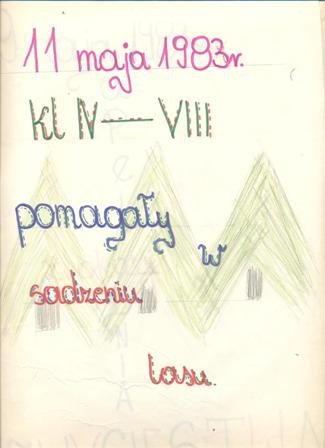 11 maja 1983r.
kl IV — VIII
pomagały
w
sadzeniu
lasu.